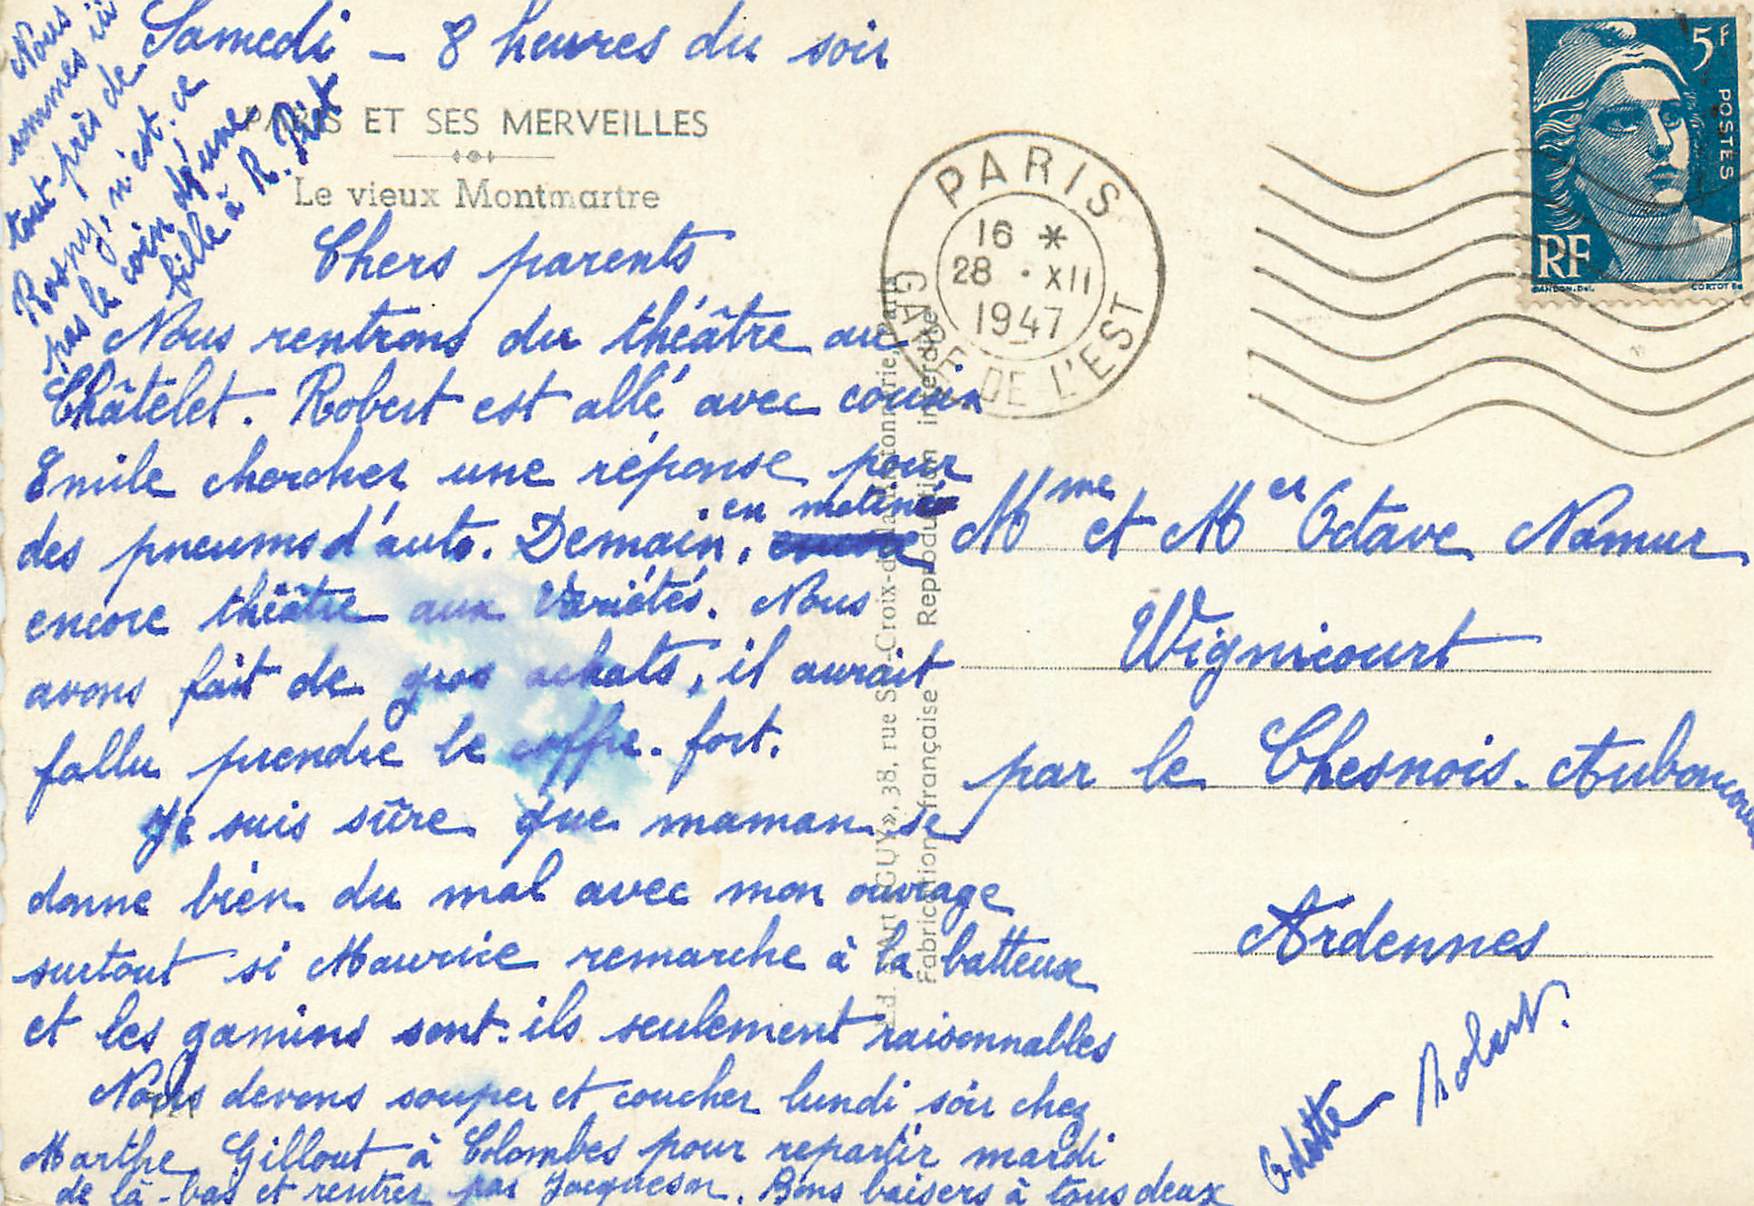 Samedi - 8 heures du soir
PARIS ET SES MERVEILLES
Le vieux Montmartre
Chers parents
Nous rentrons du théâtre au
Châtelet. Robert est allé avec cousin
Emile chercher une réponse pour
des pneums d'auto. Demain, en matinée
encore théâtre aux Variétés. Nous
avons fait de gros achats, il aurait
fallu prendre le coffre-fort.
Je suis sûre que maman se
donne bien du mal avec mon ouvrage
surtout si Maurice remarche à la batteuse
et les gamins sont-ils seulement raisonnables
Nous devons souper et coucher lundi soir chez
Marthe Gillout à Colombes pour repartir mardi
de là-bas et rentrer par Jacqueson. Bons baisers à tous deux
Odette Robert.
Nous
sommes ici
tout près de
Rosny, n'est-ce
pas le coin d'une
fille à R.
PARIS
16 *
28 · XII
1947
GARE DE L'EST
5F
POSTES
RF
GANDON. Del.
CORTOT
Mme et Mer Octave Namur
Wignicourt
par le Chesnois-Auboncourt
Ardennes
Ed. d'Art «GUY», 38, rue Ste-Croix-de-la-Bretonnerie, Paris
Fabrication française Reproduction interdite